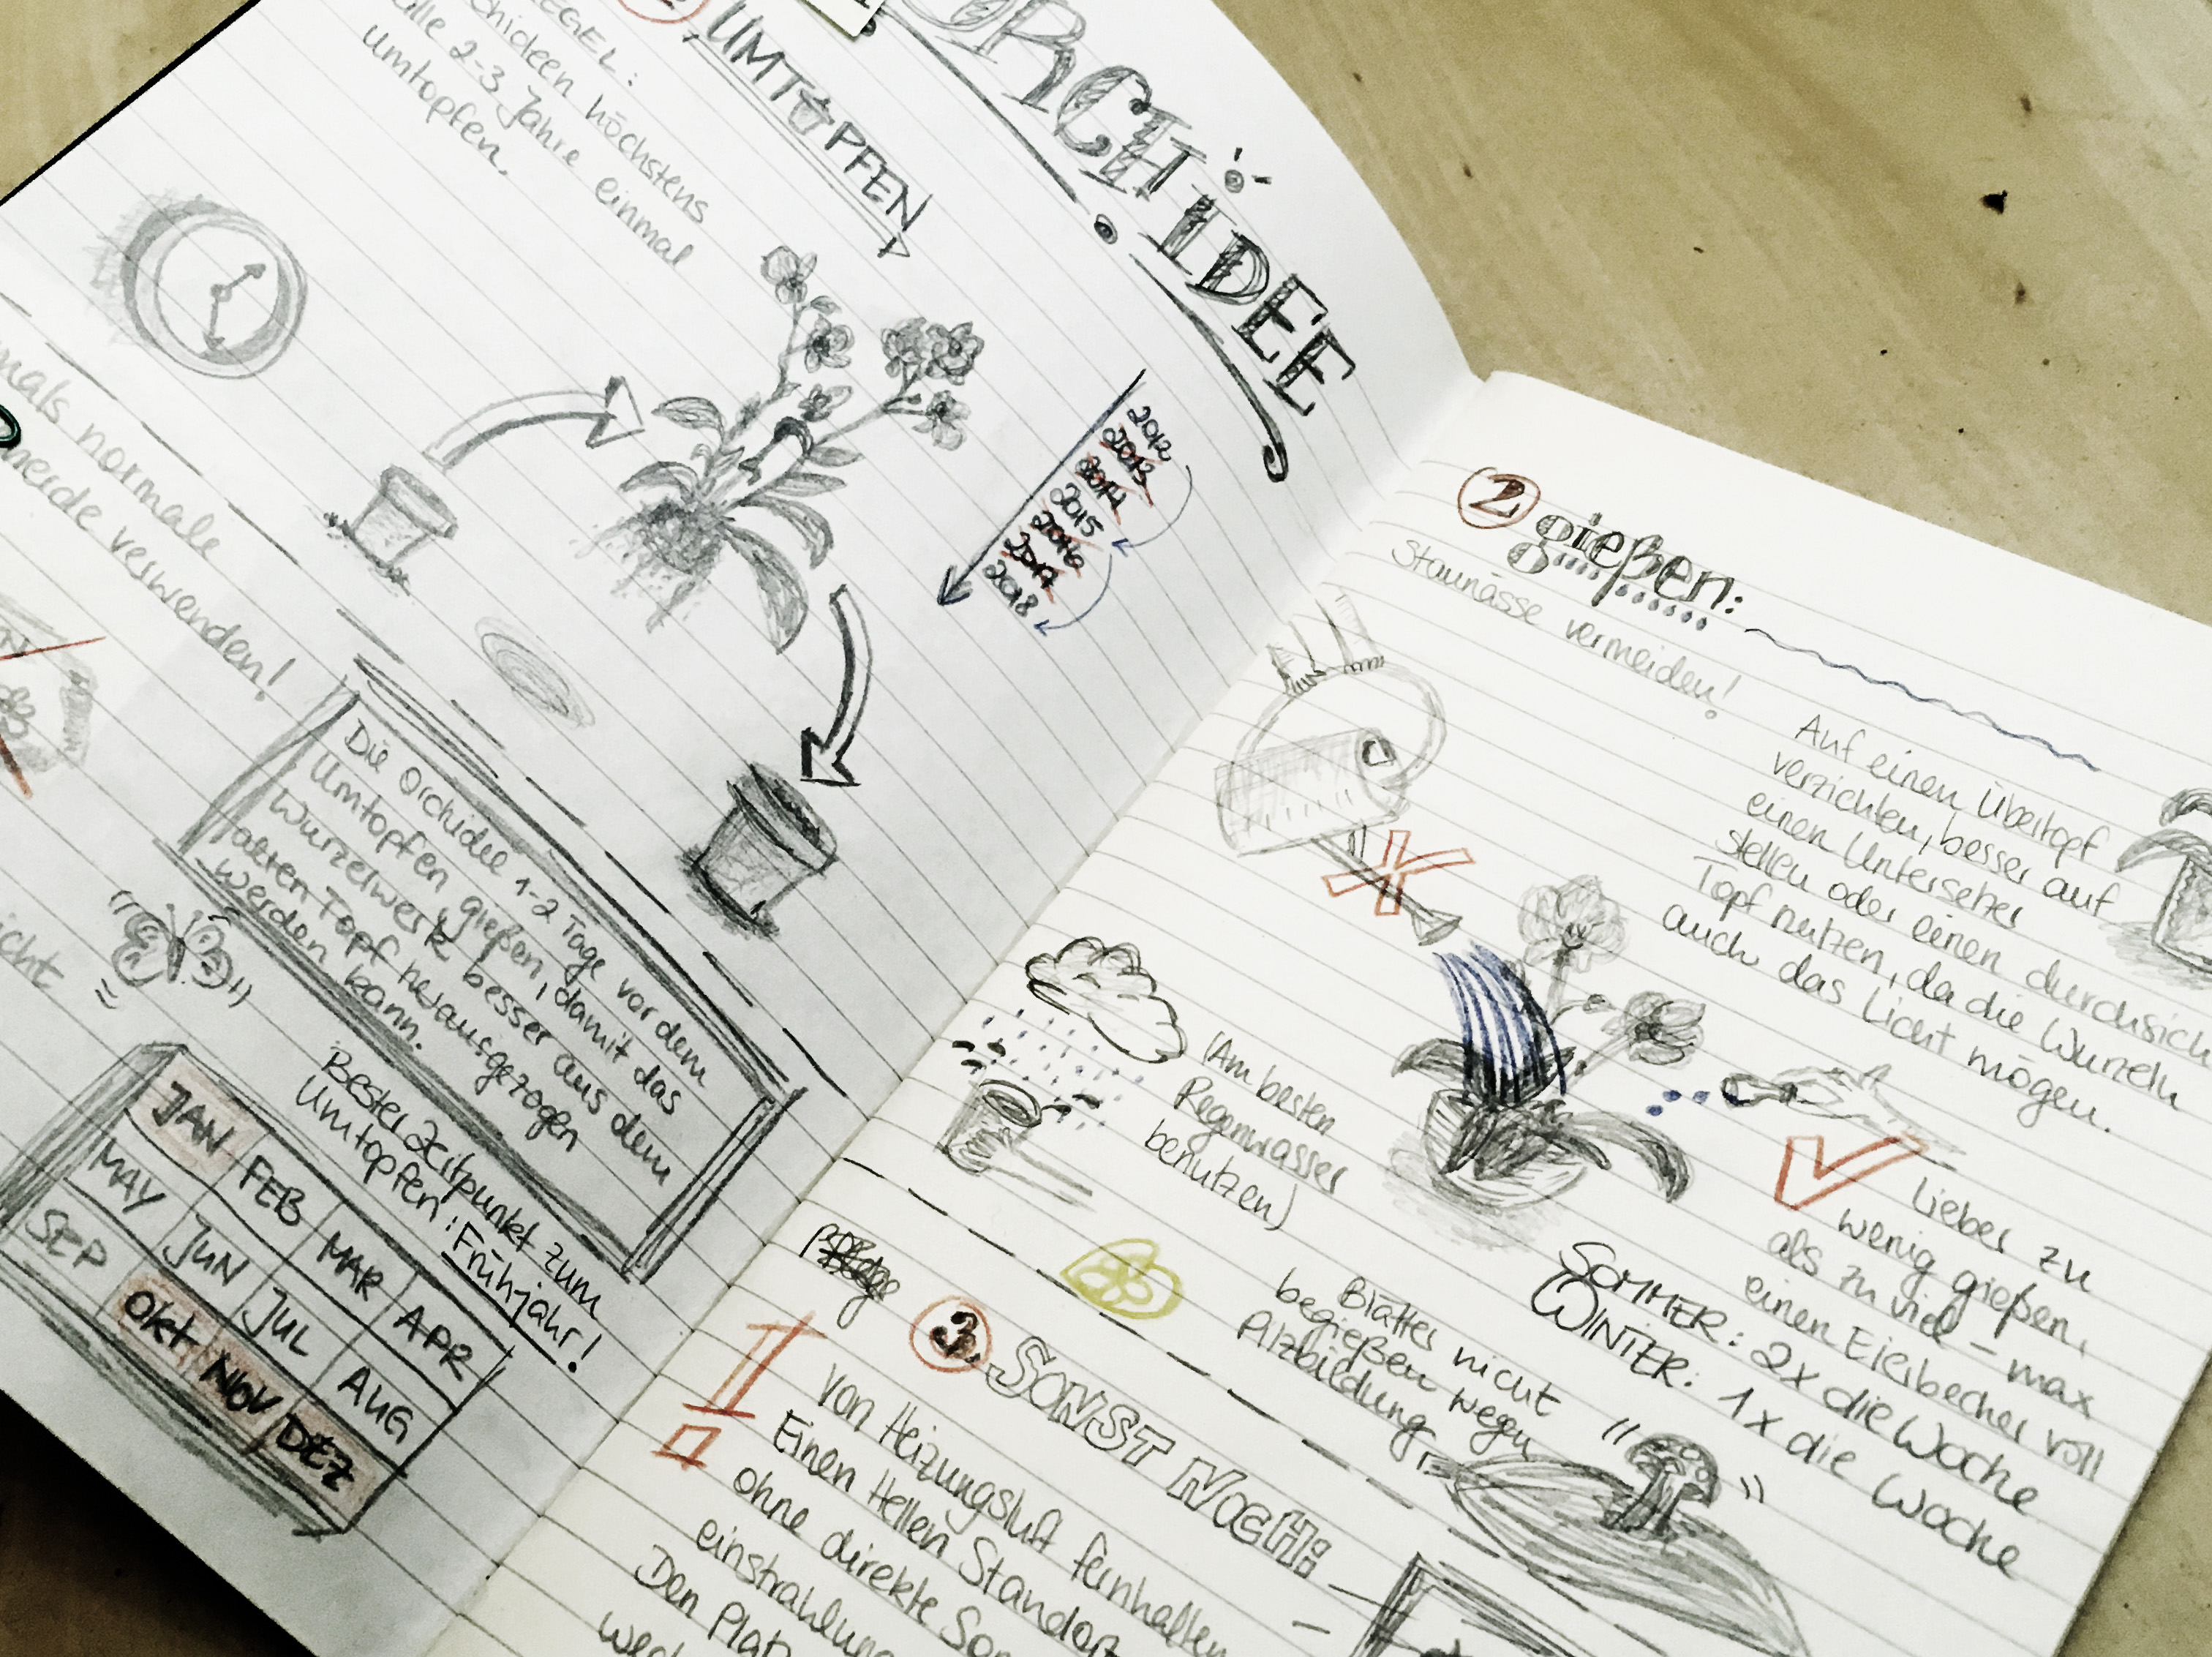 ORCHIDEE
UMTOPFEN
REGEL:
Orchideen höchstens
alle 2-3 Jahre einmal
umtopfen.
2012
2013
2014
2015
2016
2017
2018
normale
verwenden!
Die Orchidee 1-2 Tage vor dem
Umtopfen gießen, damit das
Wurzelwerk besser aus dem
alten Topf herausgezogen
werden kann.
Bester Zeitpunkt zum
Umtopfen: Frühjahr!
JAN FEB MAR APR
MAY JUN JUL AUG
SEP OKT NOV DEZ
2 gießen:
Staunässe vermeiden!
Auf einen Übertopf
verzichten, besser auf
einen Untersetzer
stellen oder einen durchsich
Topf nutzen, da die Wurzeln
auch das Licht mögen.
(Am besten
Regenwasser
benutzen)
Lieber zu
wenig gießen,
als zu viel - max
einen Eierbecher voll
SOMMER: 2x die Woche
WINTER: 1x die Woche
Blätter nicht
begießen wegen
Pilzbildung
3 SONST NOCH:
Von Heizungsluft fernhalten
Einen Hellen Standort
ohne direkte Son
einstrahlung
Den Platz